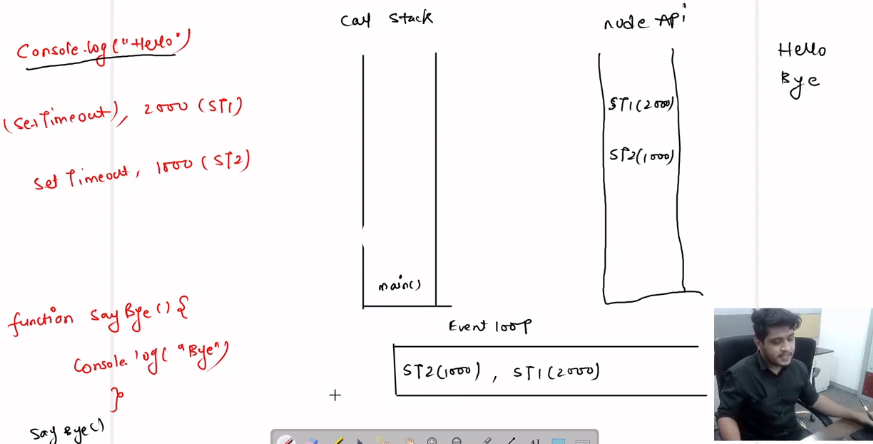 Console.log("Hello")
(SetTimeout), 2000 (ST1)
Set Timeout, 1000 (ST2)
function sayBye() {
Console.log("Bye")
}
Say Bye()
Call Stack
main()
node API
ST1(2000)
ST2(1000)
Event loop
ST2(1000), ST1(2000)
Hello
Bye